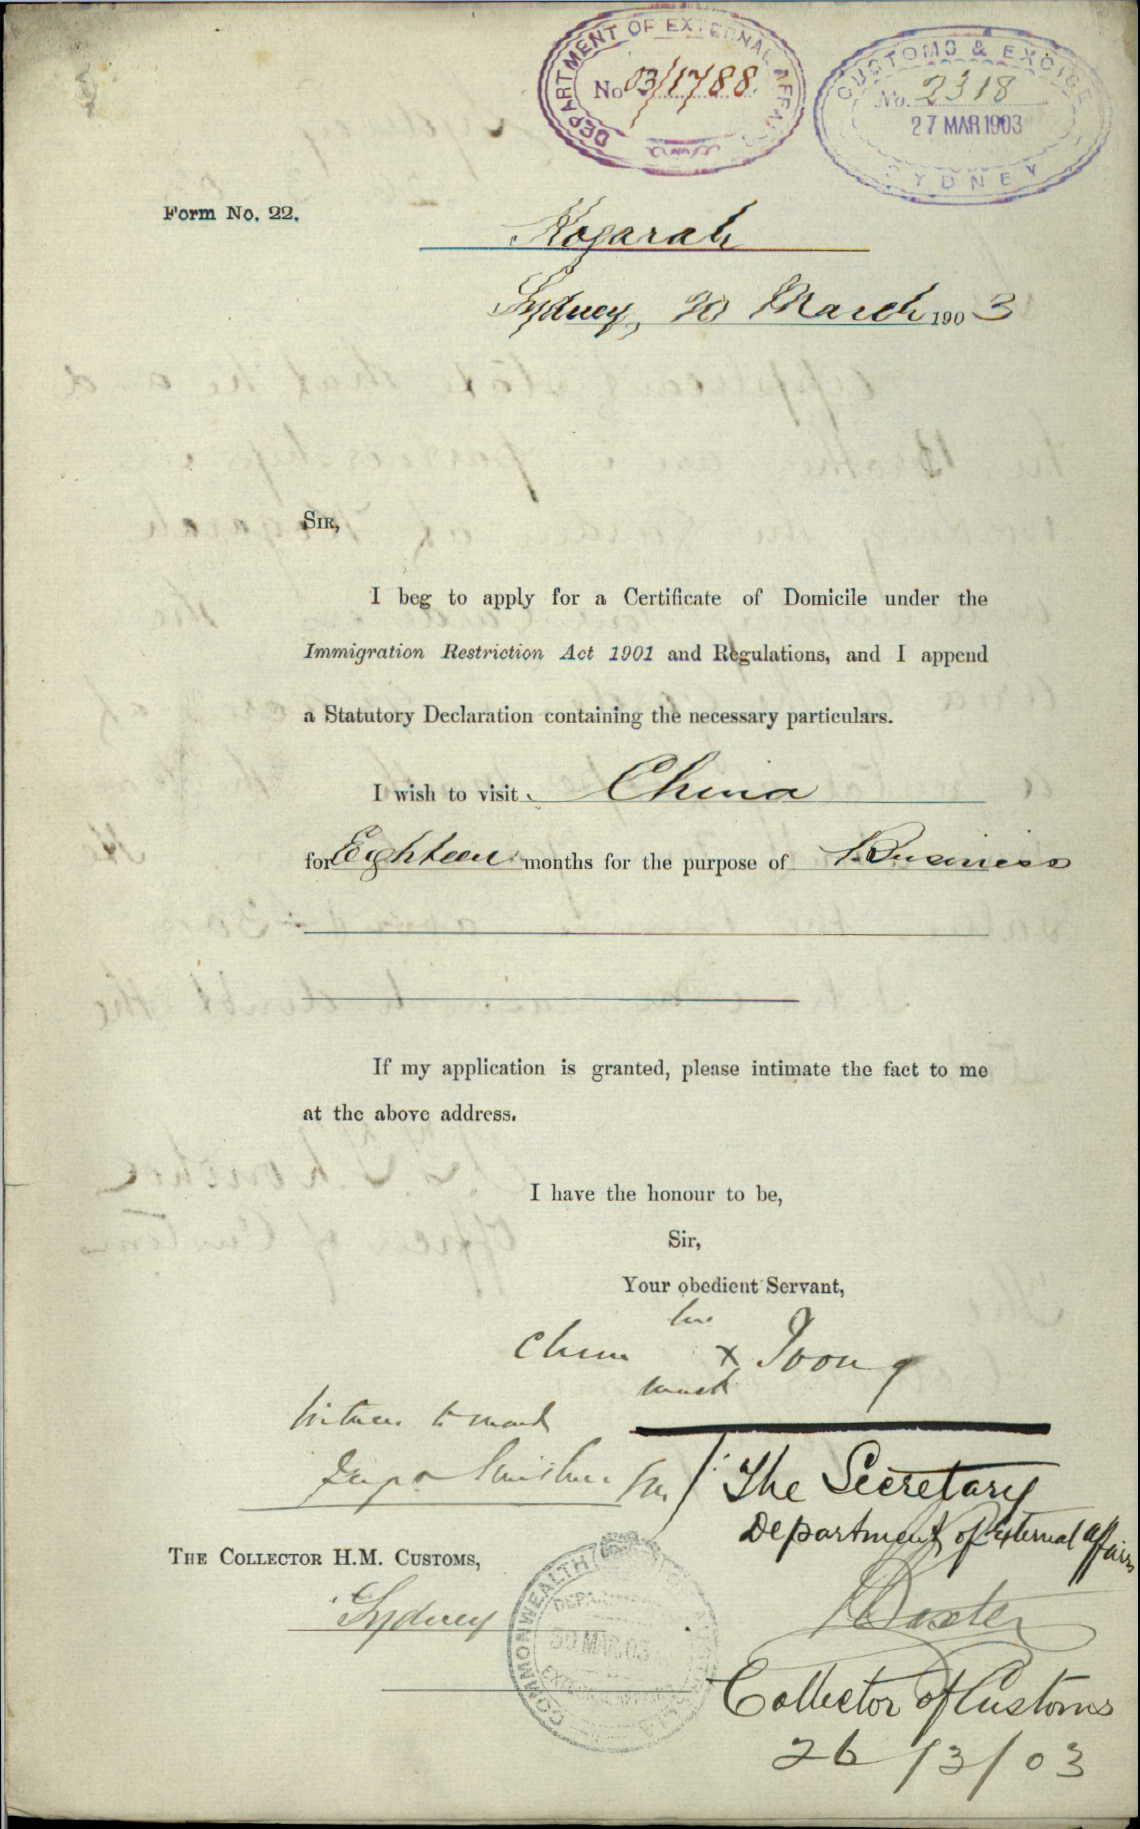 DEPARTMENT OF EXTERNAL AFFAIRS
No 03/1788
CUSTOMS & EXCISE
No. 2318
27 MAR 1903
SYDNEY
Form No. 22.
Kogarah
Sydney, March 1903
SIR,
I beg to apply for a Certificate of Domicile under the
Immigration Restriction Act 1901 and Regulations, and I append
a Statutory Declaration containing the necessary particulars.
I wish to visit China
for Eighteen months for the purpose of Business
If my application is granted, please intimate the fact to me
at the above address.
I have the honour to be,
Sir,
Your obedient Servant,
his
x
mark
Witness to mark
The Secretary
Department of External Affairs
THE COLLECTOR H.M. CUSTOMS,
Sydney
COMMONWEALTH
30 MAR 03
Baxter
Collector of Customs
26/3/03